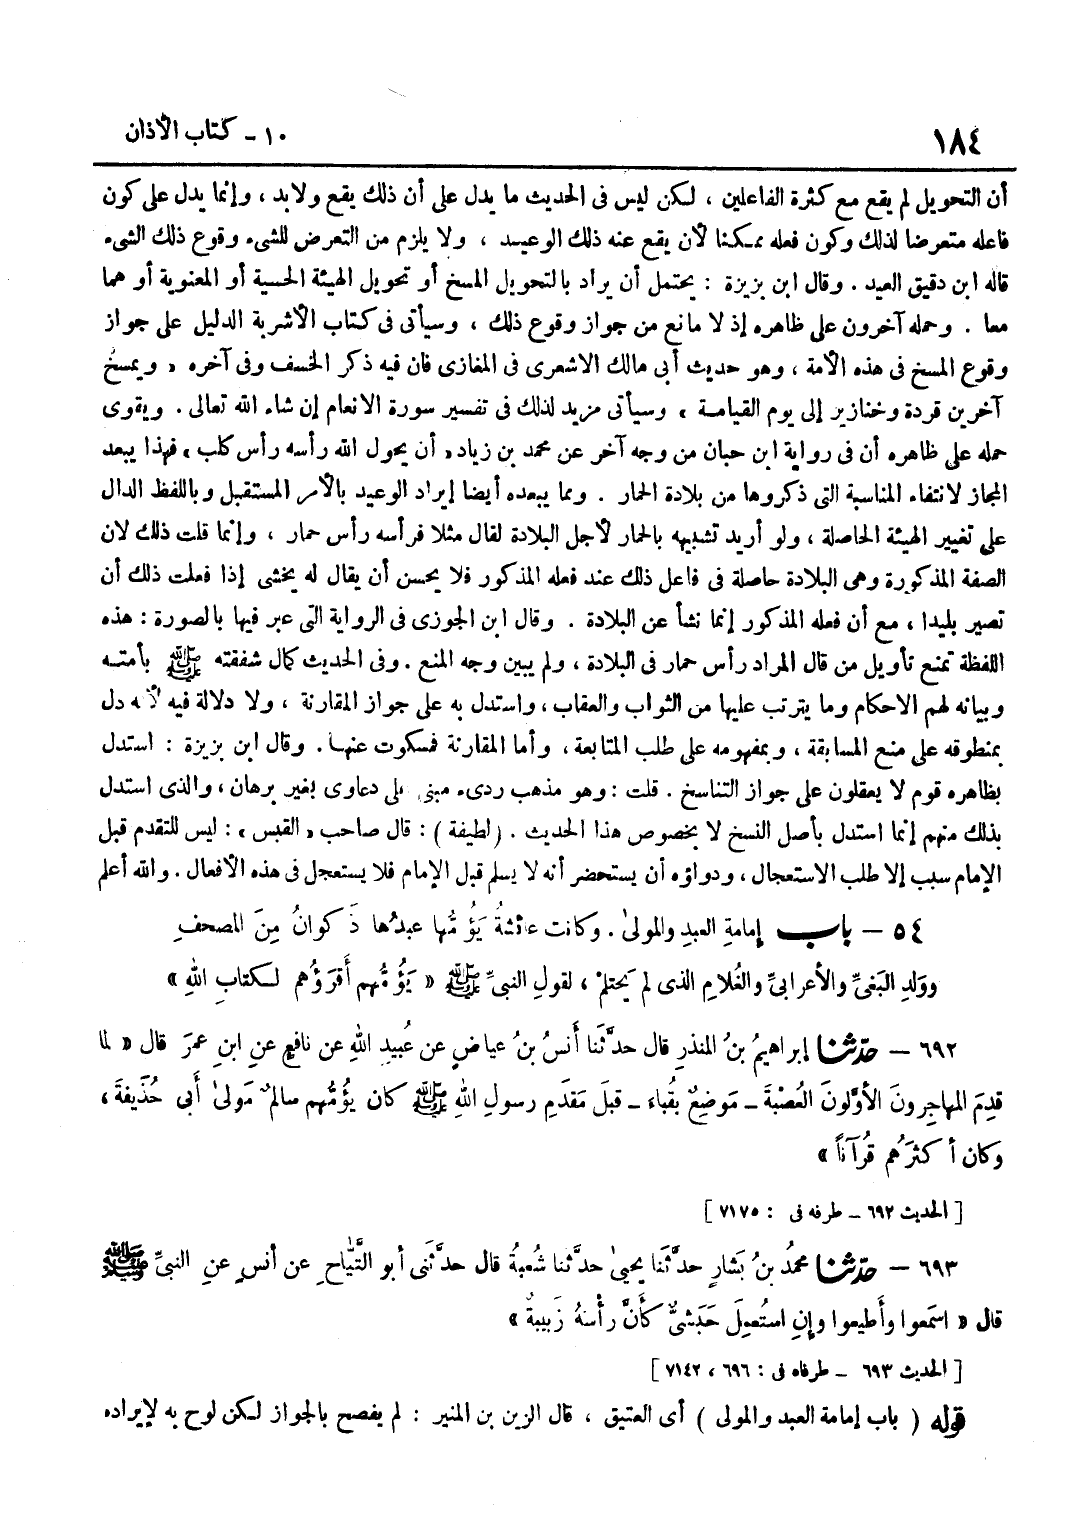 ١٨٤ ١٠ - كتاب الأذان
أن التحويل لم يقع مع كثرة الفاعلين ، لكن ليس فى الحديث ما يدل على أن ذلك يقع ولابد ، وإنما يدل على كون
فاعله متعرضا لذلك وكون فعله ممكنا لأن يقع عنه ذلك الوعيد ، ولا يلزم من التعرض للشىء وقوع ذلك الشىء
قاله ابن دقيق العيد . وقال ابن بزيزة : يحتمل أن يراد بالتحويل المسخ أو تحويل الهيئة الحسية أو المعنوية أو هما
معا . وحمله آخرون على ظاهره إذ لا مانع من جواز وقوع ذلك ، وسيأتى فى كتاب الأشربة الدليل على جواز
وقوع المسخ فى هذه الأمة ، وهو حديث أبى مالك الاشعرى فى المغازى فان فيه ذكر الخسف وفى آخره « ويمسخ
آخرين قردة وخنازير إلى يوم القيامة » وسيأتى مزيد لذلك فى تفسير سورة الانعام إن شاء الله تعالى . ويقوى
حمله على ظاهره أن فى رواية ابن حبان من وجه آخر عن محمد بن زياد « أن يحول الله رأسه رأس كلب » فهذا يبعد
المجاز لانتفاء المناسبة التى ذكروها من بلادة الحمار . ومما يبعده أيضا إيراد الوعيد بالأمر المستقبل وباللفظ الدال
على تغيير الهيئة الحاصلة ، ولو أريد تشبيهه بالحمار لأجل البلادة لقال مثلا فرأسه رأس حمار ، وإنما قلت ذلك لان
الصفة المذكورة وهى البلادة حاصلة فى فاعل ذلك عند فعله المذكور فلا يحسن أن يقال له يخشى إذا فعلت ذلك أن
تصير بليدا ، مع أن فعله المذكور إنما نشأ عن البلادة . وقال ابن الجوزى فى الرواية التى عبر فيها بالصورة : هذه
اللفظة تمنع تأويل من قال المراد رأس حمار فى البلادة ، ولم يبين وجه المنع . وفى الحديث كمال شفقته ﷺ بأمته
وبيانه لهم الاحكام وما يترتب عليها من الثواب والعقاب ، واستدل به على جواز المقارنة ، ولا دلالة فيه لأنه دل
بمنطوقه على منع المسابقة ، وبمفهومه على طلب المتابعة ، وأما المقارنة فمسكوت عنها . وقال ابن بزيزة : استدل
بظاهره قوم لا يعقلون على جواز التناسخ . قلت : وهو مذهب ردىء مبنى على دعاوى بغير برهان ، والذى استدل
بذلك منهم إنما استدل بأصل النسخ لا بخصوص هذا الحديث . (لطيفة) : قال صاحب « القبس » : ليس للتقدم قبل
الإمام سبب إلا طلب الاستعجال ، ودواؤه أن يستحضر أنه لا يسلم قبل الإمام فلا يستعجل فى هذه الأفعال . والله أعلم
٥٤ - باب إمامةِ العبدِ والمولىٰ . وكانت عائشةُ يَؤُمُّها عبدُها ذَكوانُ مِنَ المصحفِ
ووَلدِ البَغىِّ والأعرابىِّ والغُلامِ الذى لم يَحتلمْ ، لقولِ النبىِّ ﷺ « يَؤُمُّهم أَقرَؤُهم لكتابِ اللهِ »
٦٩٢ - حدّثنا إبراهيمُ بنُ المنذرِ قال حدَّثَنا أَنسُ بنُ عياضٍ عن عُبيدِ اللهِ عن نافعٍ عنِ ابنِ عمرَ قال « لما
قدِمَ المهاجِرونَ الأوَّلونَ العُصْبةَ - مَوضِعٌ بقُباءَ - قبلَ مَقدَمِ رسولِ اللهِ ﷺ كان يَؤُمُّهم سالمٌ مَولىٰ أَبى حُذَيفةَ ،
وكان أكثرَهُم قُرآناً »
[ الحديث ٦٩٢ - طرفه فى : ٧١٧٥ ]
٦٩٣ - حدّثنا محمدُ بنُ بَشارٍ حدَّثَنا يحيىٰ حدَّثَنا شُعبةُ قال حدَّثَنى أبو التَّيّاحِ عن أنسٍ عنِ النبىِّ ﷺ
قال « اسمَعوا وأَطيعوا وإنِ استُعمِلَ حَبَشىٌّ كأَنَّ رأْسَهُ زَبيبةٌ »
[ الحديث ٦٩٣ - طرفاه فى : ٦٩٦ ، ٧١٤٢ ]
قوله ( باب إمامة العبد والمولى ) أى العتيق ، قال الزين بن المنير : لم يفصح بالجواز لكن لوح به لإيراده